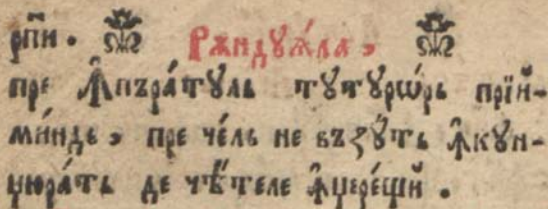 рїй . Рѫндꙋѧ́ла ,
пре ꙟ҆пъра́тꙋль тꙋтꙋрѡ́рь прїй-
ми́нде , пре че́ль не въꙁꙋ́ть ꙟ҆кꙋн-
юра́ть де че́теле ꙟ҆цере́щй .